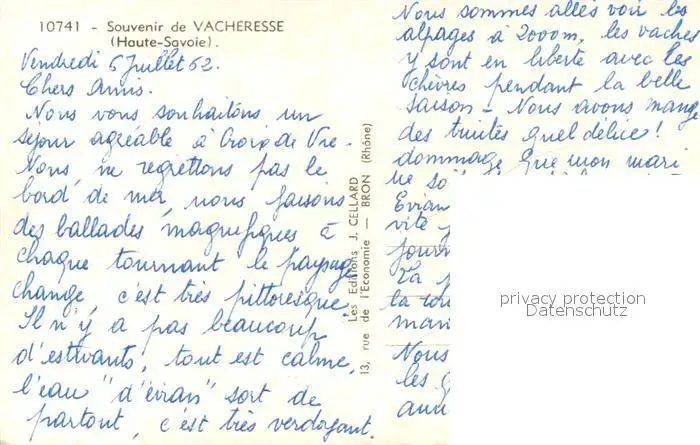 10741 - Souvenir de VACHERESSE
(Haute-Savoie).
Vendredi 6 Juillet 62.
Chers Amis.
Nous vous souhaitons un
séjour agréable à Croix de Vie.
Nous, ne regrettons pas le
bord de mer, nous faisons
des ballades magnifiques à
chaque tournant le paysage
change, c'est très pittoresque.
Il n'y a pas beaucoup
d'estivants, tout est calme,
l'eau "d'évian" sort de
partout, c'est très verdoyant.
Les Editions J. CELLARD
13, rue de l'Economie — BRON (Rhône)
Nous sommes allés voir les
alpages à 2000m, les vaches
y sont en liberté avec les
chèvres pendant la belle
saison - Nous avons mangé
des truites quel délice!
dommage que mon mari
ne
Evian
vite
la
Nous
les
privacy protection
Datenschutz